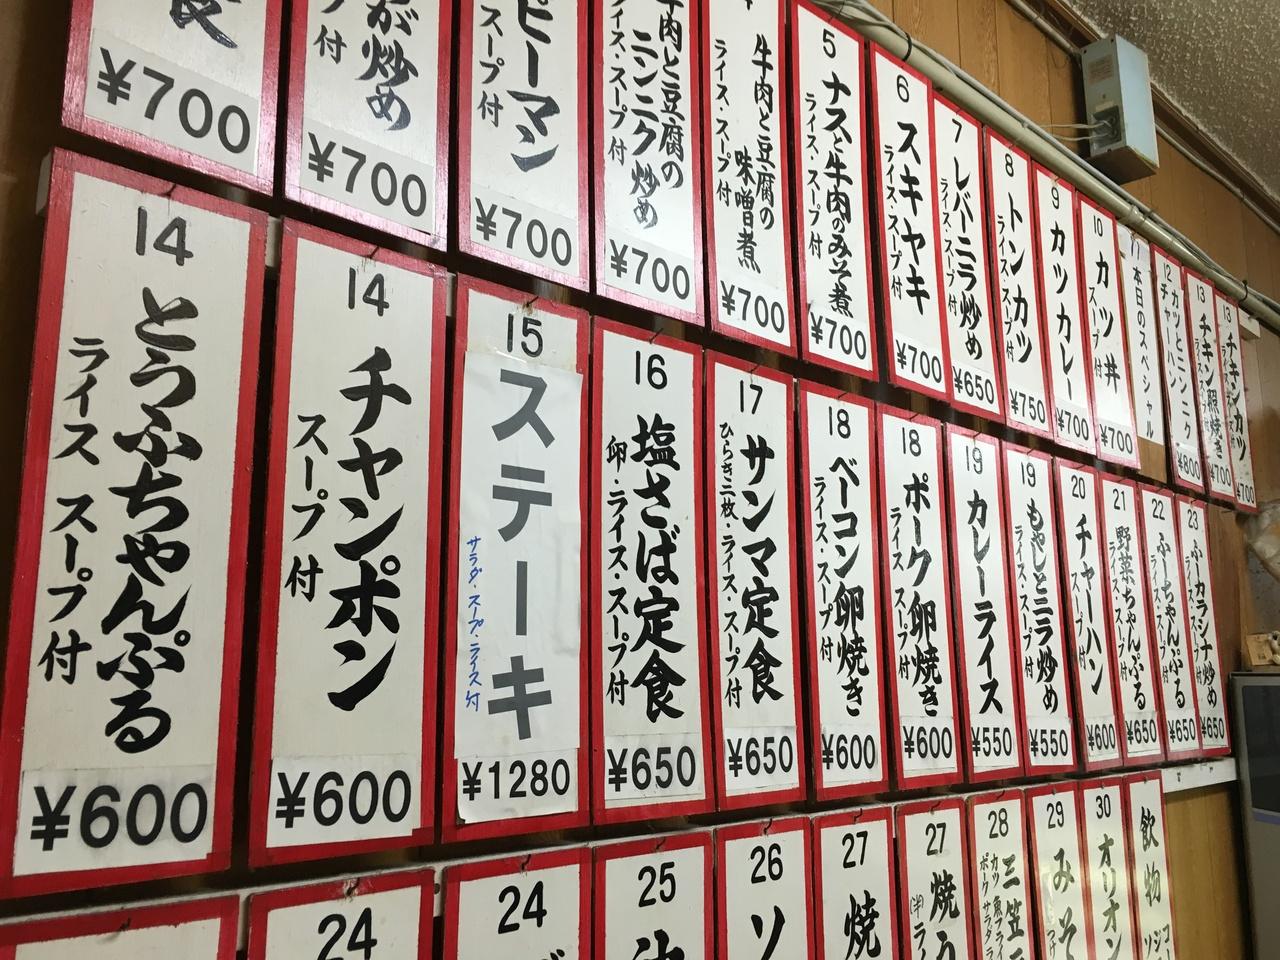 食
¥700
が炒め
スープ付
¥700
ピーマン
スープ付
¥700
牛肉と豆腐の
ニンニク炒め
ライス・スープ付
¥700
牛肉と豆腐の
味噌煮
ライス・スープ付
¥700
5
ナスと牛肉のみそ煮
ライス・スープ付
¥700
6
スキヤキ
ライス・スープ付
¥700
7
レバーニラ炒め
ライス・スープ付
¥650
8
トンカツ
ライス・スープ付
¥750
9
カツカレー
¥700
10
カツ丼
スープ付
¥700
11
本日のスペシャル
12
カツとニンニク
チャーハン
¥800
13
チキン照焼き
¥700
13
チキンカツ
¥700
14
とうふちゃんぷる
ライス スープ付
¥600
14
チャンポン
スープ付
¥600
15
ステーキ
サラダ・スープ・ライス付
¥1280
16
塩さば定食
卵・ライス・スープ付
¥650
17
サンマ定食
ひらき二枚・ライス・スープ付
¥650
18
ベーコン卵焼き
ライス・スープ付
¥600
18
ポーク卵焼き
ライス スープ付
¥600
19
カレーライス
¥550
19
もやしとニラ炒め
ライス・スープ付
¥550
20
チャーハン
スープ付
¥600
21
野菜ちゃんぷる
ライス・スープ付
¥650
22
ふーちゃんぷる
ライス・スープ付
¥650
23
ふーカラシナ炒め
ライス・スープ付
¥650
24
24
25
26
ソ
27
焼
27
焼う
28
三笠
29
みそ
30
オリオン
飲物